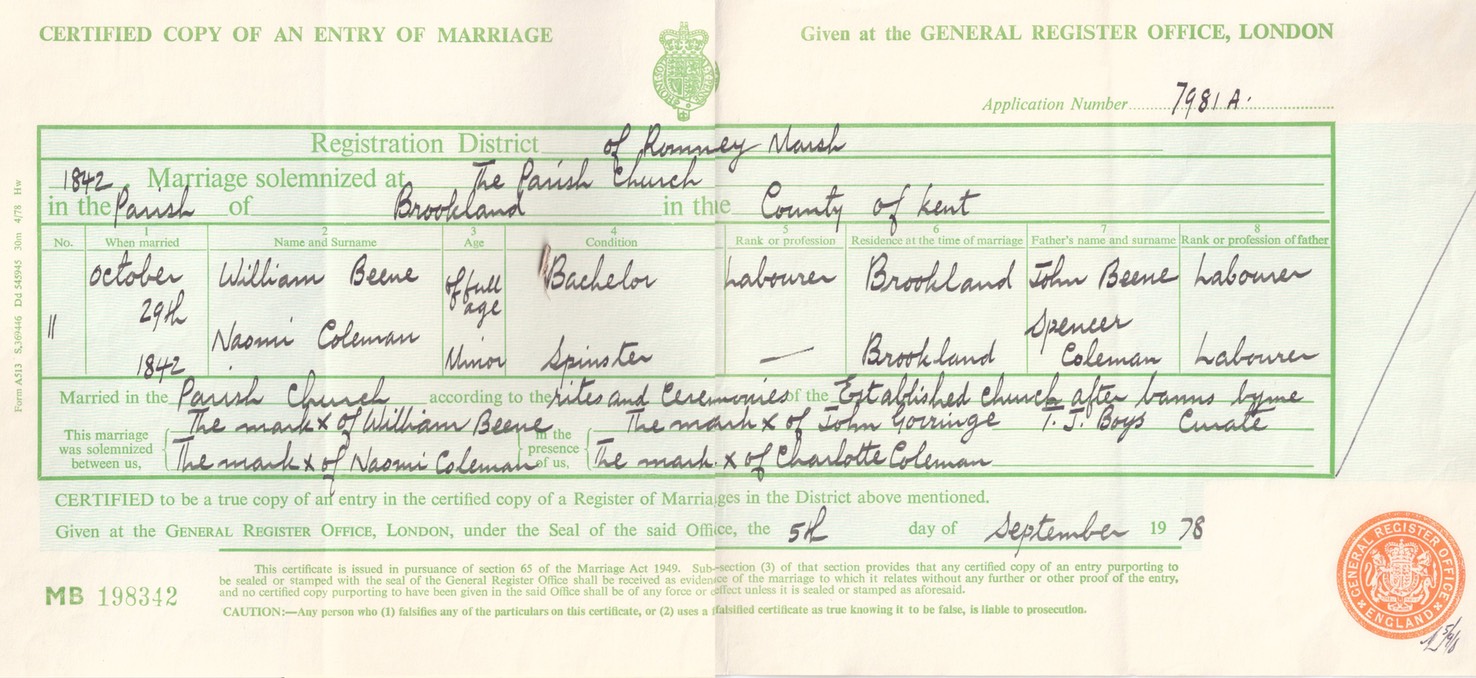 CERTIFIED COPY OF AN ENTRY OF MARRIAGE
Given at the GENERAL REGISTER OFFICE, LONDON
Application Number 7981A.
Registration District of Romney Marsh
1842. Marriage solemnized at The Parish Church
in the Parish of Brookland in the County of Kent
1 2 3 4 5 6 7 8
No. When married Name and Surname Age Condition Rank or profession Residence at the time of marriage Father's name and surname Rank or profession of father
11 October 29th 1842 William Beene of full age Bachelor Labourer Brookland John Beene Labourer
Naomi Coleman Minor Spinster — Brookland Spencer Coleman Labourer
Married in the Parish Church according to the rites and Ceremonies of the Established Church after banns by me
T. J. Boys Curate
This marriage was solemnized between us,
The mark x of William Beene
The mark x of Naomi Coleman
in the presence of us,
The mark x of John Gorringe
The mark x of Charlotte Coleman
CERTIFIED to be a true copy of an entry in the certified copy of a Register of Marriages in the District above mentioned.
Given at the GENERAL REGISTER OFFICE, LONDON, under the Seal of the said Office, the 5th day of September 19 78
This certificate is issued in pursuance of section 65 of the Marriage Act 1949. Sub-section (3) of that section provides that any certified copy of an entry purporting to
be sealed or stamped with the seal of the General Register Office shall be received as evidence of the marriage to which it relates without any further or other proof of the entry,
and no certified copy purporting to have been given in the said Office shall be of any force or effect unless it is sealed or stamped as aforesaid.
CAUTION:—Any person who (1) falsifies any of the particulars on this certificate, or (2) uses a falsified certificate as true knowing it to be false, is liable to prosecution.
MB 198342
Form A513 S.369446 Dd 545945 30m 4/78 Hw
GENERAL REGISTER OFFICE
ENGLAND